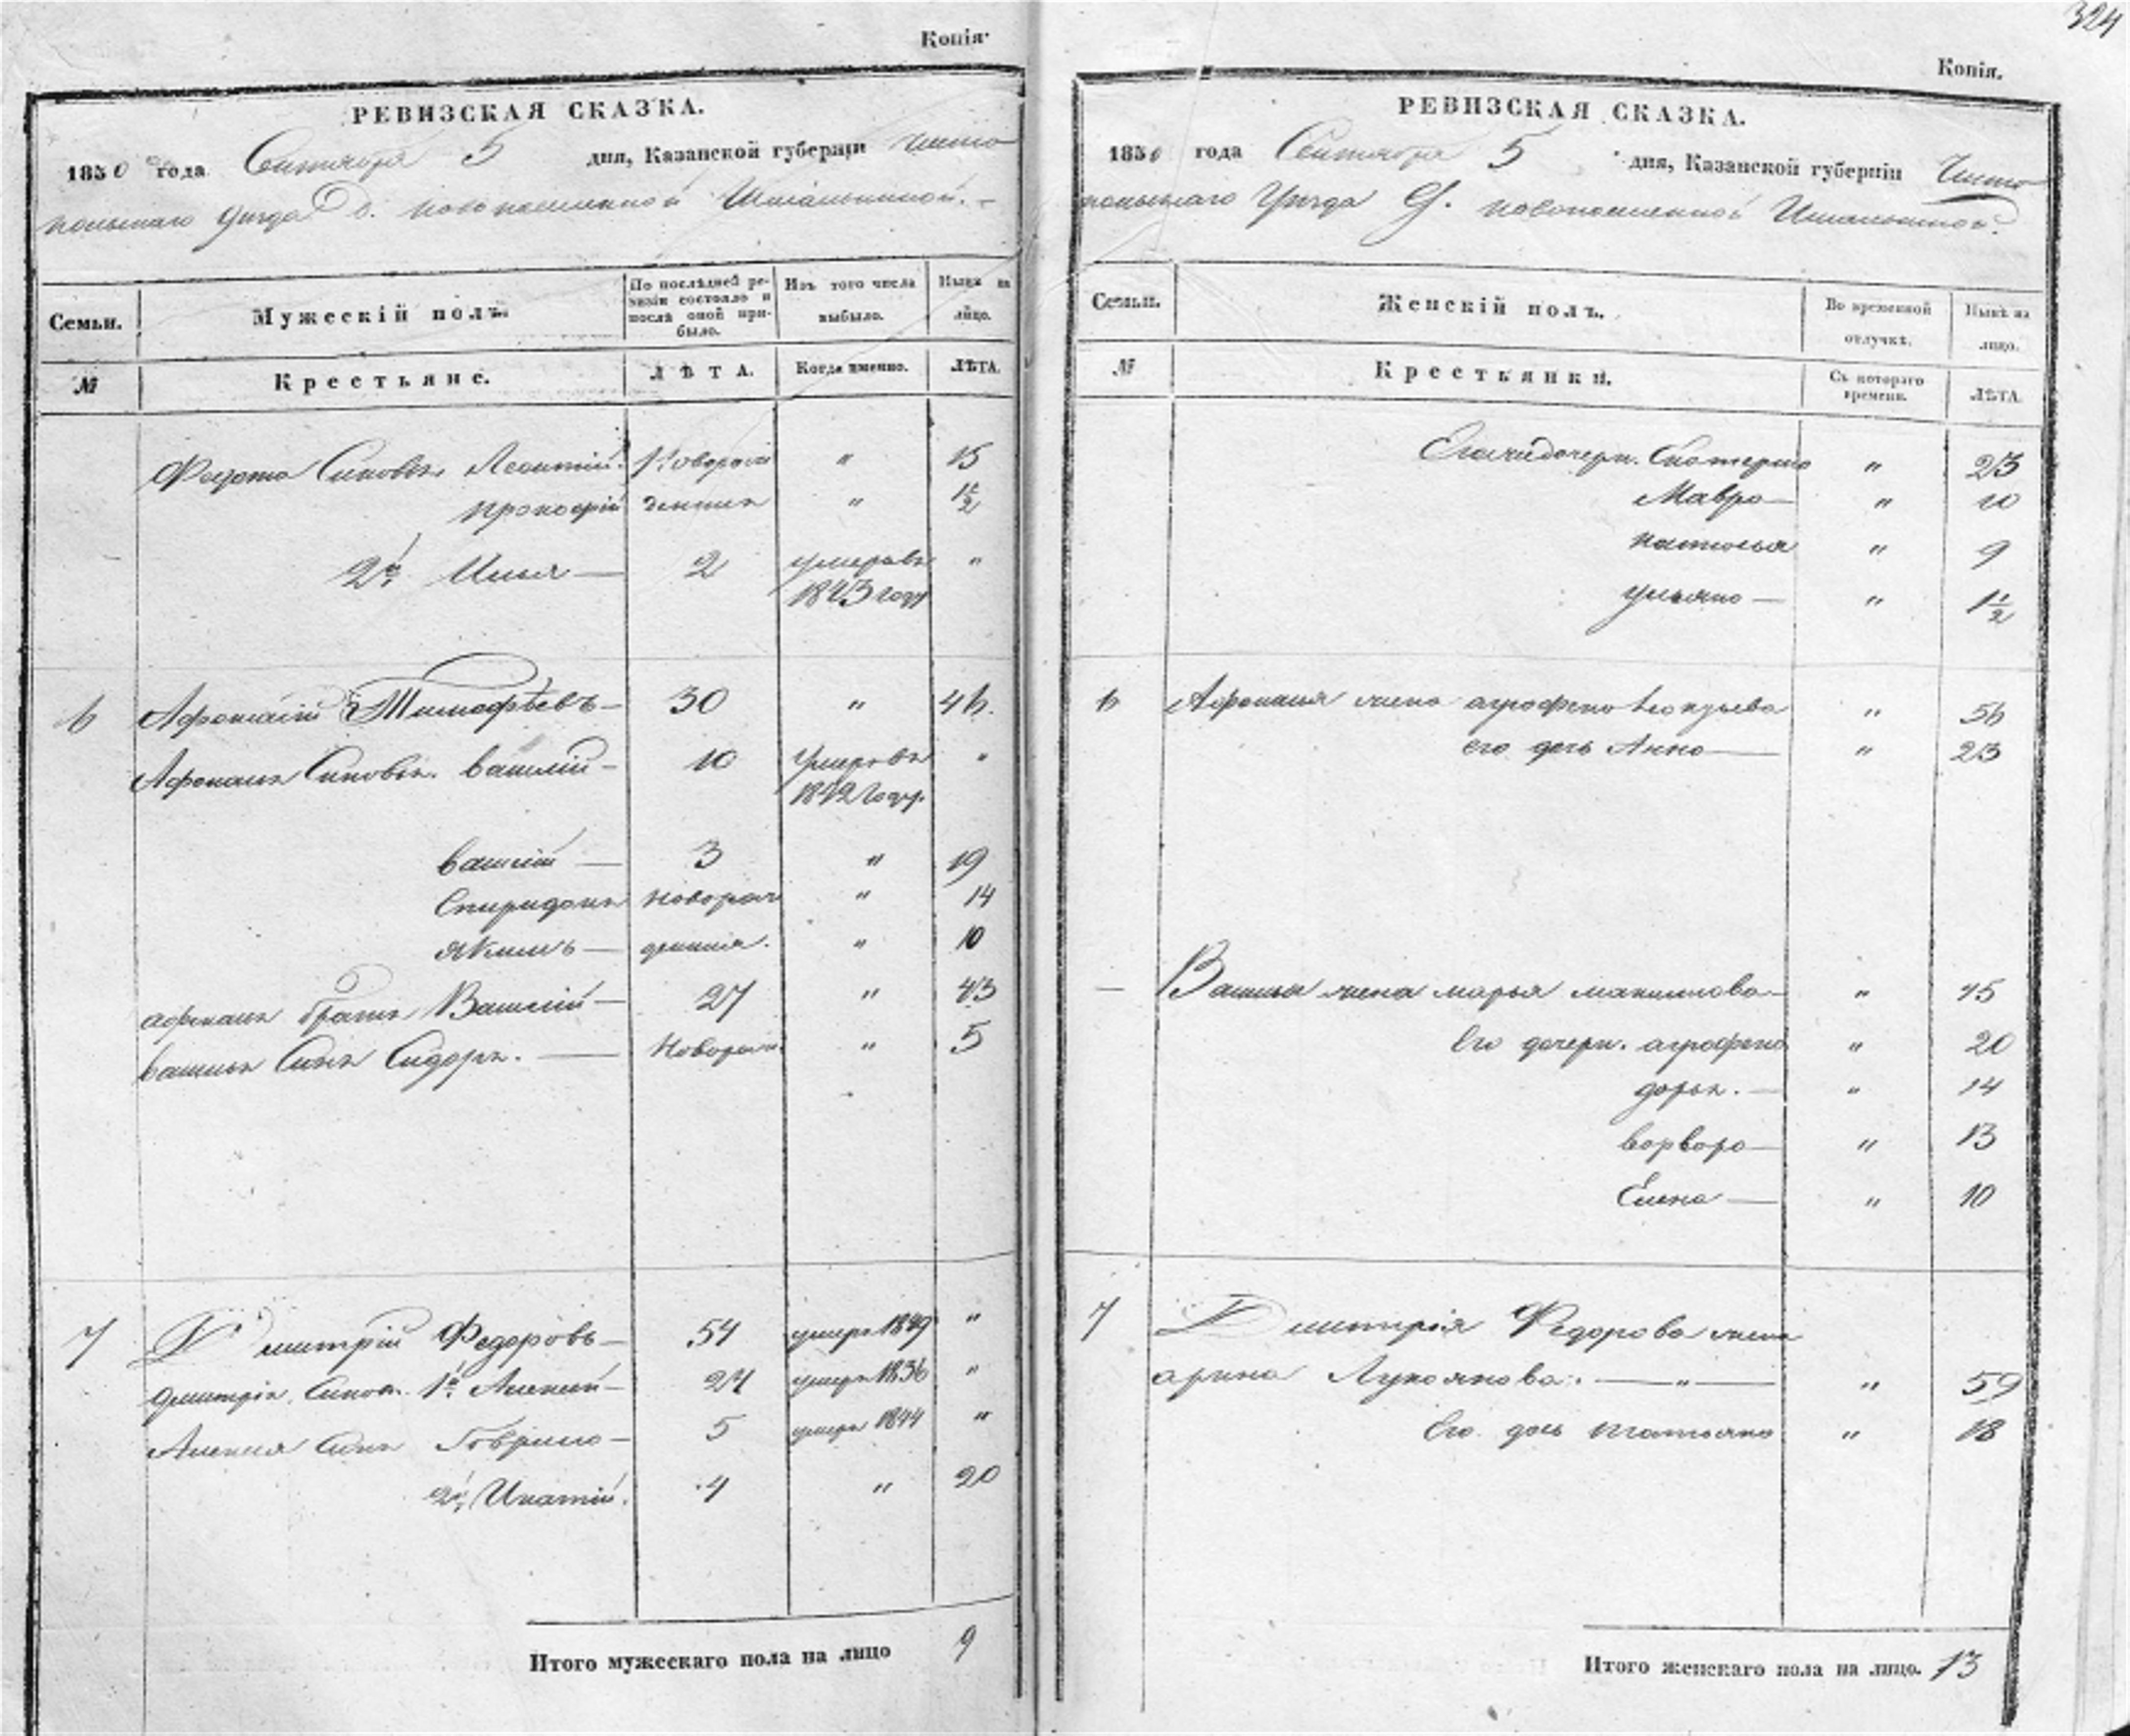 324
Копія.
РЕВИЗСКАЯ СКАЗКА.
1850 года Сентября 5 дня, Казанской губерніи Чисто
польскаго уезда д.
Семьи.
Мужескій полъ.
По послѣдней ре-
визіи состояло и
послѣ оной при-
было.
Изъ того числа
выбыло.
Нынѣ на
лицо.
№
Крестьяне.
ЛѢТА.
Когда именно.
ЛѢТА.
Федота Сыновья Леонтій Новорож 15
Прокофій денные " 1 1/2
2й Илья — 2 умеръ въ "
1843 году
6 Афонасій Тимофѣевъ — 30 " 46.
Афонасія Сыновья Василій — 10 Умеръ въ "
1842 году.
Василій — 3 " 19
Спиридонъ новорож " 14
Якимъ — денныя. " 10
Афонасія братъ Василій — 27 " 43
Василья Сынъ Сидоръ. — Новорож. " 5
7 Дмитрій Федоровъ — 54 умеръ 1849 "
Дмитрія Сынов. 1й Алексей — 24 умеръ 1836 "
Алексея Сынъ Гаврило — 5 умеръ 1844 "
2й Ипатій. 4 " 20
Итого мужескаго пола на лицо 9
Копія.
РЕВИЗСКАЯ СКАЗКА.
1850 года Сентября 5 дня, Казанской губерніи Чисто
польскаго Уезда
Семьи.
Женскій полъ.
Во временной
отлучкѣ.
Нынѣ на
лицо.
№
Крестьянки.
Съ котораго
времени.
ЛѢТА.
дочери. Катерина " 23
Мавра — " 10
Наталья " 9
Ульяна — " 1 1/2
6 Афонасія жена Аграфена " 56
его дочь Анна — " 23
— Василья жена Марья Максимова — " 45
Его дочери. Аграфена " 20
Дарья. — " 14
Варвара — " 13
Елена — " 10
7 Дмитрія Федорова жена
Арина Лукоянова. — " — " 59
Его дочь Татьяна " 18
Итого женскаго пола на лицо. 13